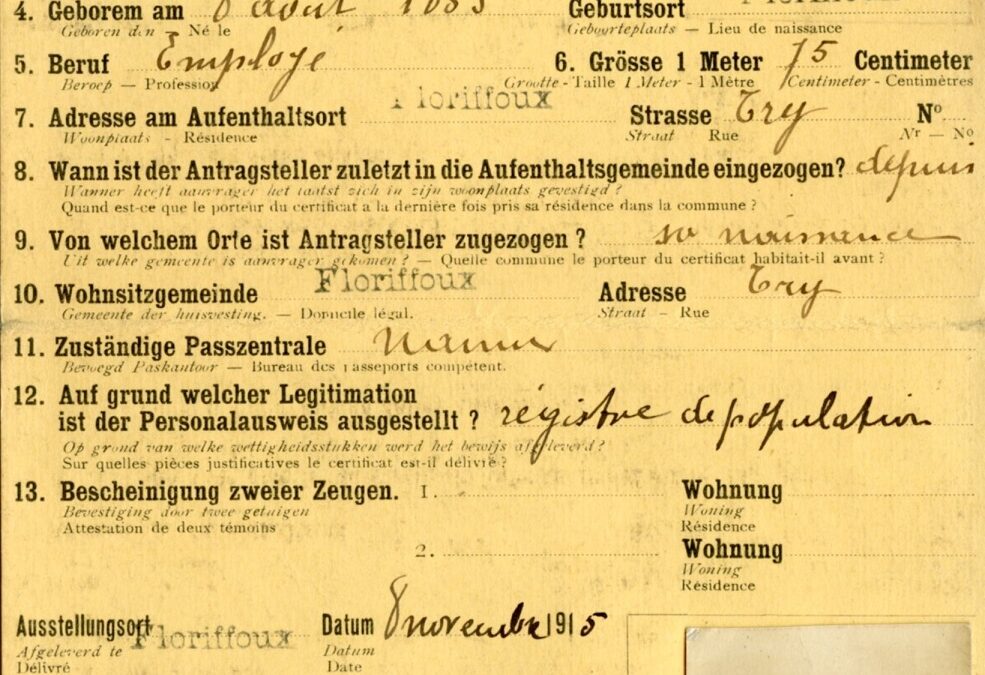 4. Geborem am 8 août 1883 Geburtsort Floriffoux
Geboren den - Né le Geboorteplaats — Lieu de naissance
5. Beruf Employé 6. Grösse 1 Meter 75 Centimeter
Beroep — Profession Grootte - Taille 1 Meter - 1 Mètre Centimeter - Centimètres
7. Adresse am Aufenthaltsort Floriffoux Strasse Try No
Woonplaats - Résidence Straat Rue Nr — No
8. Wann ist der Antragsteller zuletzt in die Aufenthaltsgemeinde eingezogen? depuis
Wanner heeft aanvrager het laatst zich in zijn woonplaats gevestigd ?
Quand est-ce que le porteur du certificat a la dernière fois pris sa résidence dans la commune ?
9. Von welchem Orte ist Antragsteller zugezogen ? sa naissance
Uit welke gemeente is aanvrager gekomen ? — Quelle commune le porteur du certificat habitait-il avant ?
10. Wohnsitzgemeinde Floriffoux Adresse Try
Gemeente der huisvesting. — Domicile légal. Straat - Rue
11. Zuständige Passzentrale Namur
Bevoegd Paskantoor — Bureau des passeports compétent.
12. Auf grund welcher Legitimation
ist der Personalausweis ausgestellt ? régistre de population
Op grond van welke wettigheidsstukken werd het bewijs afgeleverd ?
Sur quelles pièces justificatives le certificat est-il délivré ?
13. Bescheinigung zweier Zeugen. 1. Wohnung
Bevestiging door twee getuigen Woning
Attestation de deux témoins Résidence
2. Wohnung
Woning
Résidence
Ausstellungsort Floriffoux Datum 8 novembre 1915
Afgeleverd te Datum
Délivré Date